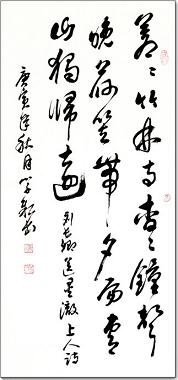 蒼〻竹林寺杳〻鐘聲
晚荷笠帶夕陽青
山獨歸遠
刘长卿送灵澈上人诗
庚寅年秋月书